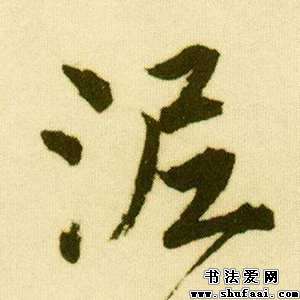 泥
书法爱网
www.shufaai.com